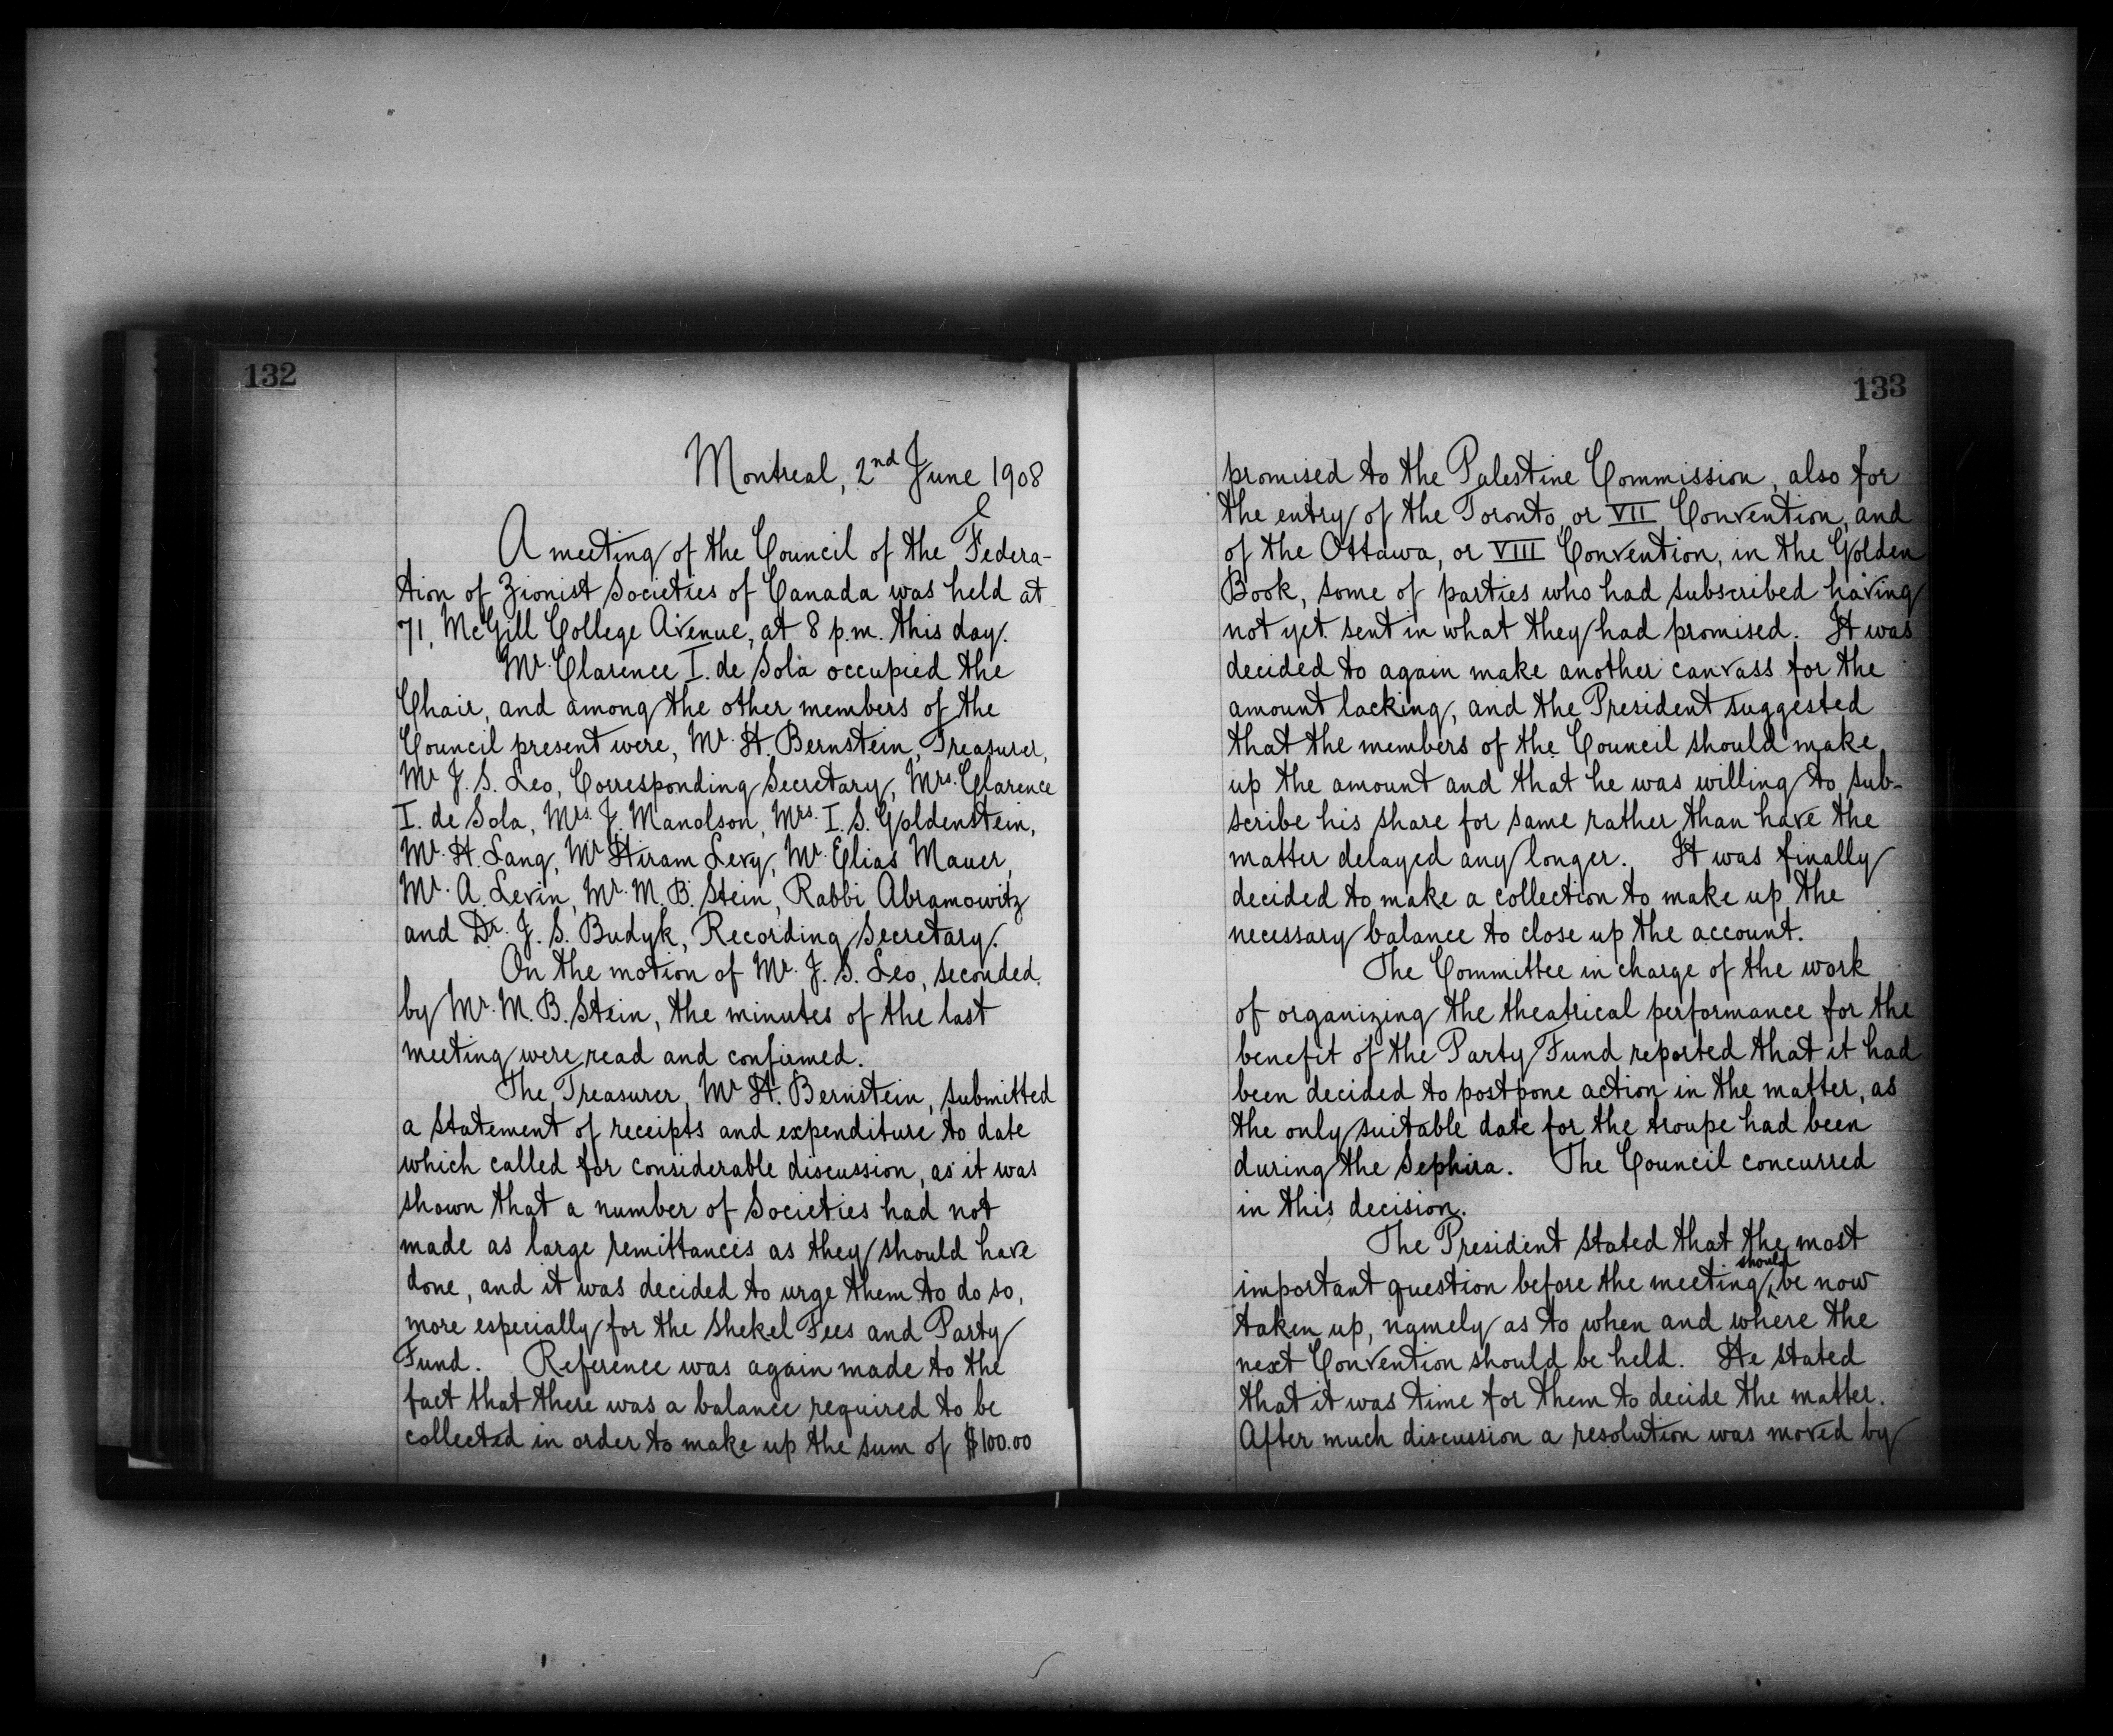 132
Montreal, 2nd June 1908
A meeting of the Council of the Federa-
tion of Zionist Societies of Canada was held at
71, McGill College Avenue, at 8 p.m. this day.
Mr. Clarence I. de Sola occupied the
Chair, and among the other members of the
Council present were, Mr. H. Bernstein, Treasurer,
Mr J. S. Leo, Corresponding Secretary, Mrs. Clarence
I. de Sola, Mrs. J. Manolson, Mrs. I. S. Goldenstein,
Mr. H. Lang, Mr Hiram Levy, Mr. Elias Mauer,
Mr. A. Levin, Mr. M. B. Stein, Rabbi Abramowitz
and Dr. J. S. Budyk, Recording Secretary.
On the motion of Mr. J. S. Leo, seconded
by Mr. M. B. Stein, the minutes of the last
meeting were read and confirmed.
The Treasurer, Mr H. Bernstein, submitted
a statement of receipts and expenditure to date
which called for considerable discussion, as it was
shown that a number of Societies had not
made as large remittances as they should have
done, and it was decided to urge them to do so,
more especially for the Shekel Fees and Party
Fund. Reference was again made to the
fact that there was a balance required to be
collected in order to make up the sum of $100.00
133
promised to the Palestine Commission, also for
the entry of the Toronto, or VII Convention, and
of the Ottawa, or VIII Convention, in the Golden
Book, some of parties who had subscribed having
not yet sent in what they had promised. It was
decided to again make another canvass for the
amount lacking, and the President suggested
that the members of the Council should make
up the amount and that he was willing to sub-
scribe his share for same rather than have the
matter delayed any longer. It was finally
decided to make a collection to make up the
necessary balance to close up the account.
The Committee in charge of the work
of organizing the theatrical performance for the
benefit of the Party Fund reported that it had
been decided to postpone action in the matter, as
the only suitable date for the troupe had been
during the Sephira. The Council concurred
in this decision.
The President stated that the most
important question before the meeting should be now
taken up, namely as to when and where the
next Convention should be held. He stated
that it was time for them to decide the matter.
After much discussion a resolution was moved by